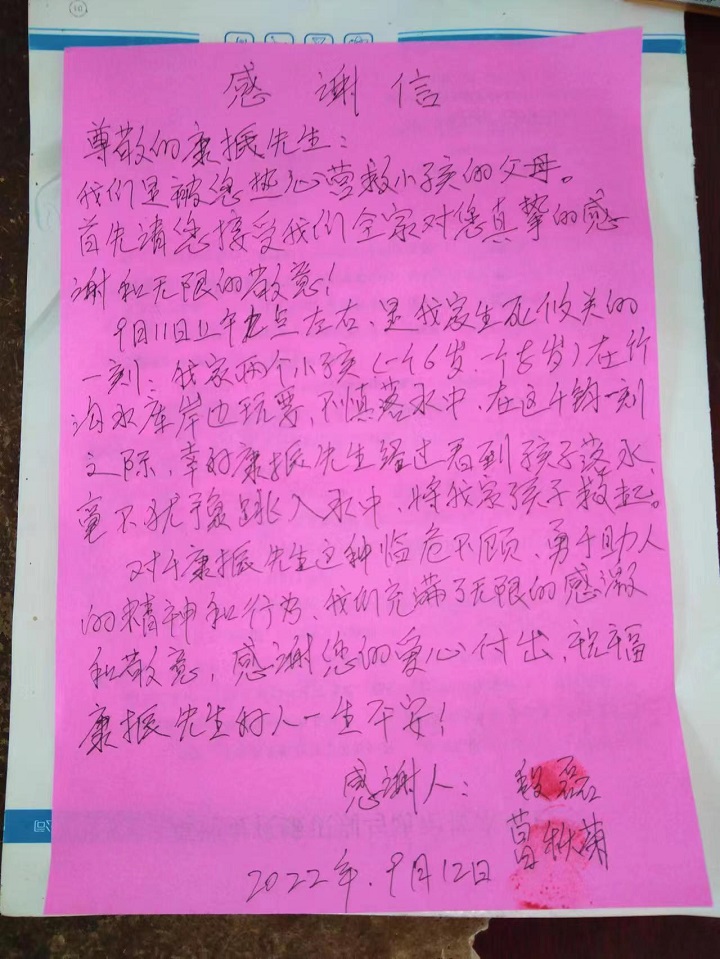 感谢信
尊敬的康振先生：
我们是被您热心营救小孩的父母。
首先请您接受我们全家对您真挚的感
谢和无限的敬意！
9月11日上午九点左右、是我家生死攸关的
一刻：我家两个小孩（一个6岁.一个5岁）在竹
沟水库岸边玩耍，不慎落水中，在这千钧一刻
之际，幸好康振先生经过看到孩子落水，
毫不犹豫跳入水中，将我家孩子救起。
对于康振先生这种临危不顾、勇于助人
的精神和行为、我们充满了无限的感激
和敬意，感谢您的爱心付出，祝福
康振先生好人一生平安！
感谢人：磊
秋菊
2022年.9月12日